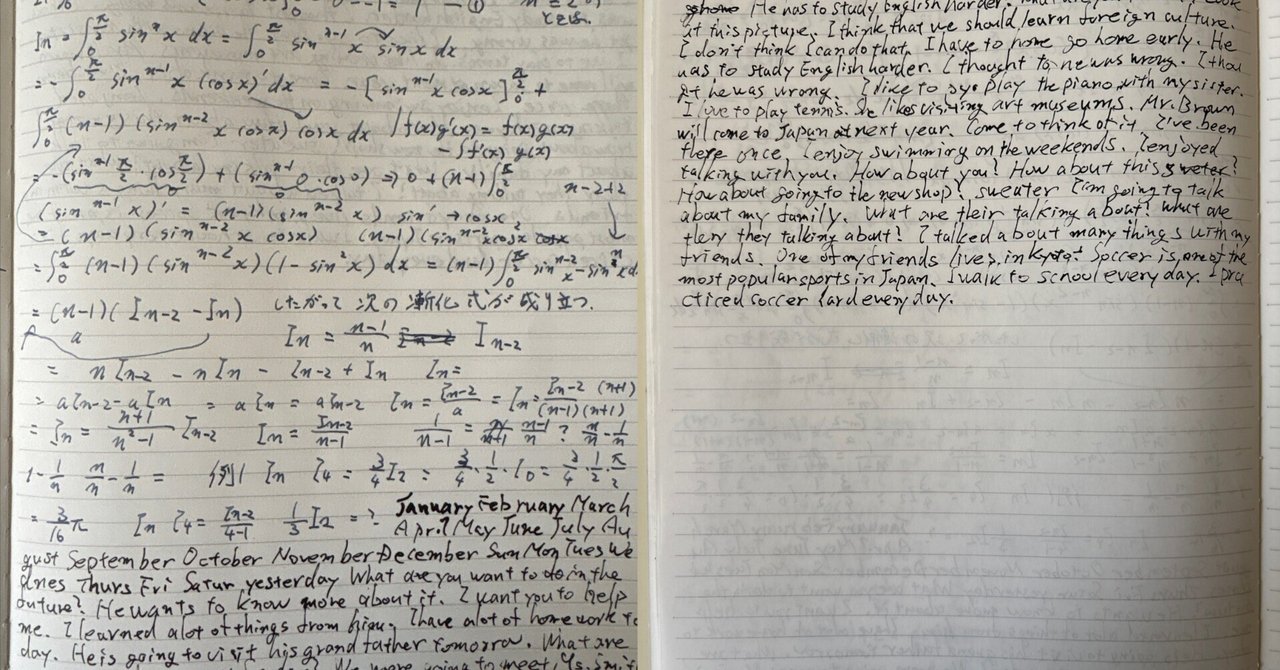 In = ∫₀^{π/2} sinⁿx dx = ∫₀^{π/2} sin^{n-1} x sinx dx
= -∫₀^{π/2} sin^{n-1} x (cosx)' dx = -[sin^{n-1} x cosx]₀^{π/2} +
∫₀^{π/2} (n-1)(sin^{n-2} x cosx) cosx dx / f(x)g'(x) = f(x)g(x)
- ∫f'(x) g(x)
= -(sin^{n-1} π/2 · cos π/2) + (sin^{n-1} 0 · cos0) ⇒ 0 + (n-1)∫₀^{π/2}
n-2+2
(sin^{n-1} x)' = (n-1)(sin^{n-2} x) sin → cosx
= (n-1)(sin^{n-2} x cosx) (n-1)(sin^{n-2}x cos²x
= ∫₀^{π/2} (n-1)(sin^{n-2} x)(1-sin²x) dx = (n-1)∫₀^{π/2} sin^{n-2}x - sinⁿx d
= (n-1)(In-2 - In) したがって 次の漸化式が成り立つ.
a In = n-1/n In-2
= nIn-2 - nIn - In-2 + In In=
= aIn-2 - aIn = aIn = aIn-2 In = In-2/a = In = In-2 (n+1)/(n-1)(n+1)
= In = n+1/n²-1 In-2 In = In-2/n-1 1/n-1 = n-1/n ? n/n - 1/n
1-1/n n/n - 1/n = 例1 In I4 = 3/4 I2 = 3/4 · 1/2 · I0 = 3/4 · 1/2 · π/2
= 3/16 π In I4 = In-2/4-1 1/3 I2 = ? January February March
April May June July Au
gust September October November December Sun Mon Tues We
dnes Thurs Fri Satur yesterday What are you want to do in the
future? He wants to know more about it. I want you to help
me. I learned a lot of things from him. I have a lot of homework to
day. He is going to visit his grand father tomorrow. What are
We were going to meet Ms. Smit
He has to study English harder. look
at this picture. I think that we should learn foreign culture.
I don't think I can do that. I have to home go home early. He
has to study English harder. I thought to he was wrong. I thou
ght he was wrong. I like to play the piano with my sister.
I love to play tennis. She likes visiting art museums. Mr. Brown
will come to Japan next year. Come to think of it I've been
there once, I enjoy swimming on the weekends. I enjoyed
talking with you. How about you? How about this sweter?
How about going to the new shop? sweater I'm going to talk
about my family. What are their talking about? What are
they they talking about? I talked about many things with my
friends. One of my friends lives in Kyoto. Soccer is one of the
most popular sports in Japan. I walk to school every day. I pra
cticed soccer hard every day.